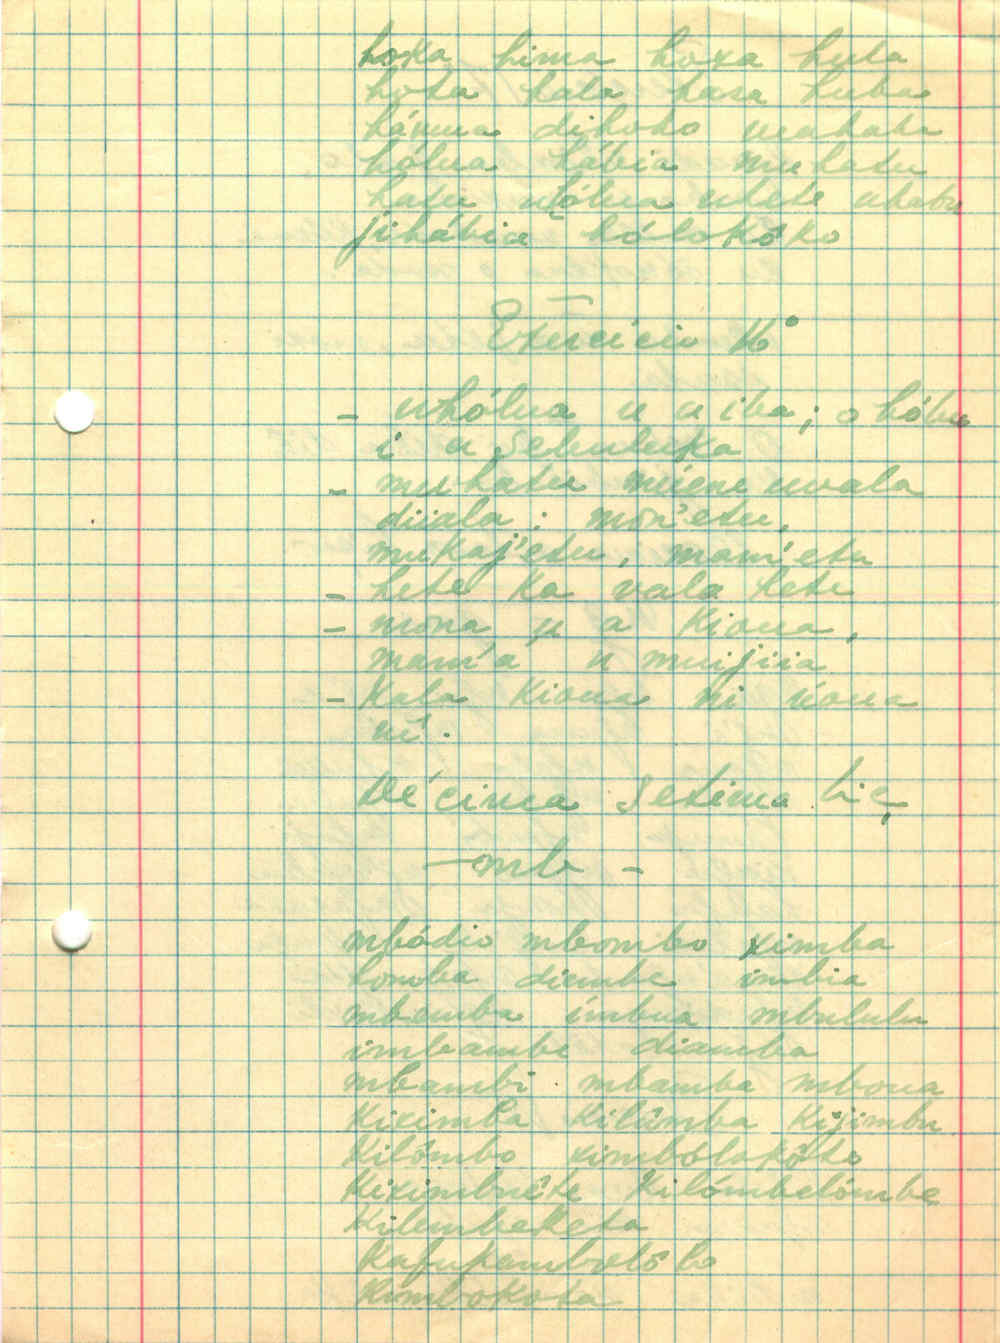 hoxa hima hoxa huta
hota hala hasa huba
hámua dihoho mahaha
hólua hábia muhatu
hatu uhólua utete uhatu
jihábia hólokoko
Exercício 16º
- uhólua u a iba; o hábu
i u sebuluka
- muhatu muene uvala
diiala; mon'etu,
mukaj'etu, mam'etu
- hete ka vala hete
- mona u a kioua,
mam'a u muijiia
- kala kioua ni uoua
uê.
Décima Setima Liç.
- mb -
mbódio mbombo ximba
homba diembe imbia
mbemba ímbua mbululu
imbambe diamba
mbambi mbamba mboua
kiximba kilûmba kijimbu
kilômbo ximbólokôto
kiximbuête kilómbelómbe
kilembeketa
kafukambolólo
kimbokota